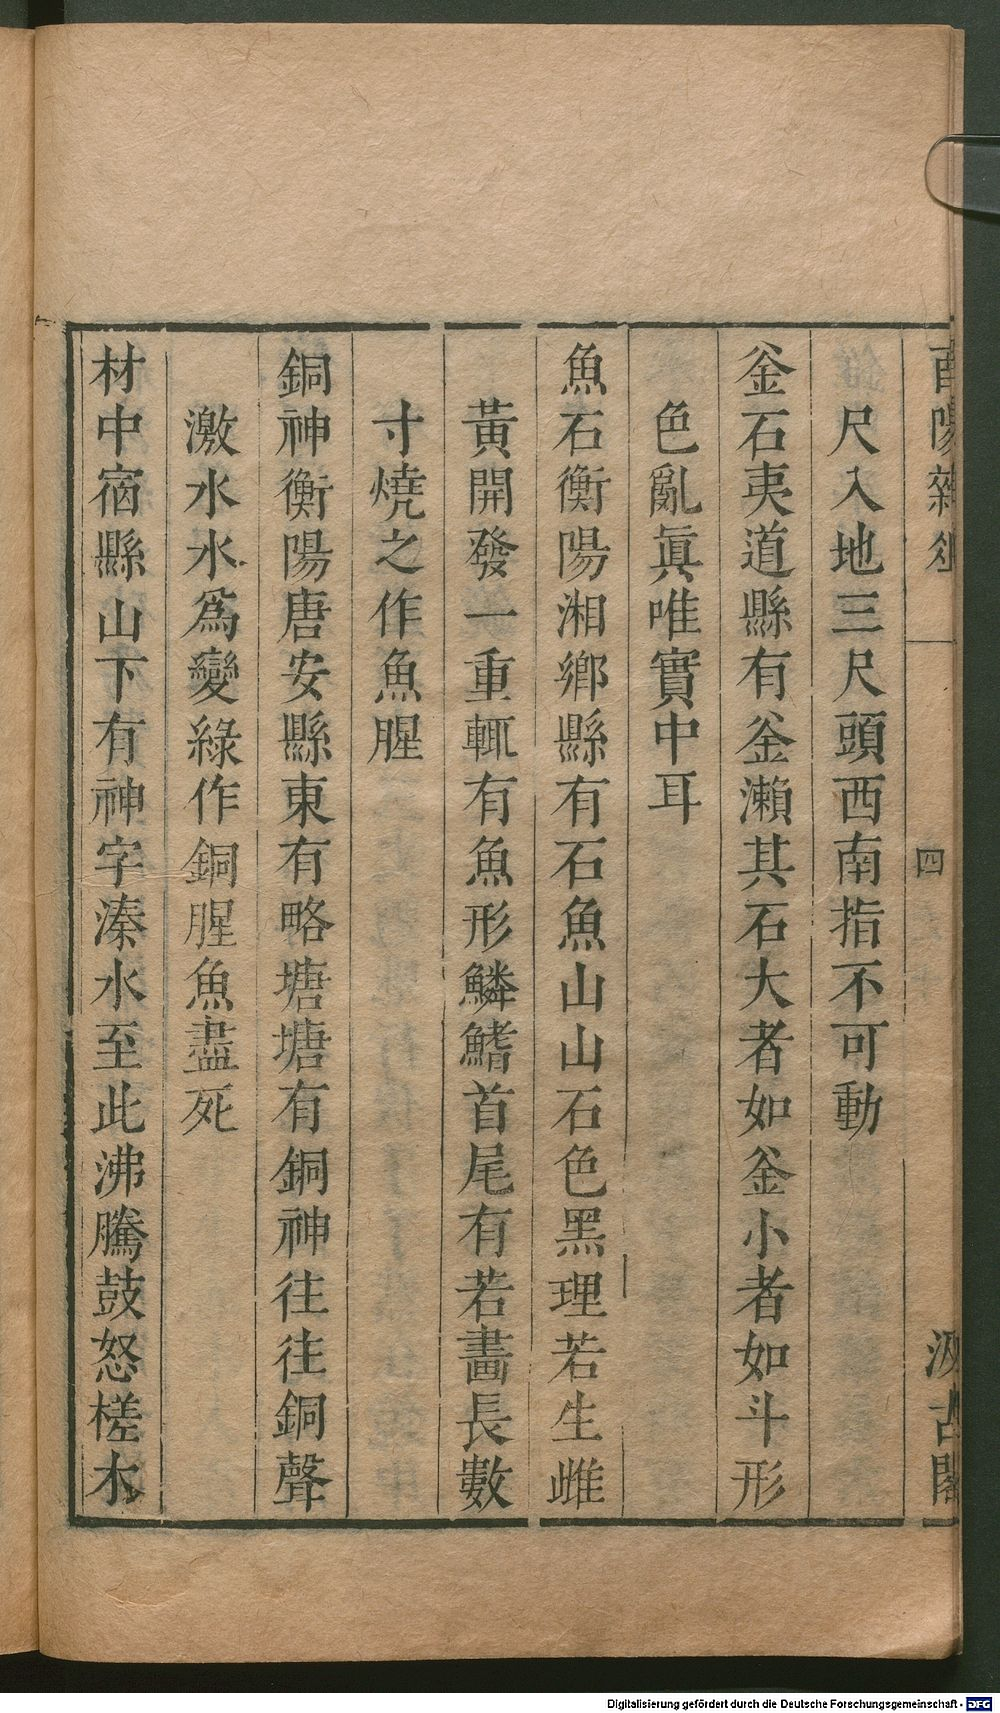 酉陽雜俎 四 汲古閣
尺入地三尺頭西南指不可動
釜石夷道縣有釜瀨其石大者如釜小者如斗形
色亂眞唯實中耳
魚石衡陽湘鄉縣有石魚山山石色黑理若生雌
黃開發一重輒有魚形鱗鰭首尾有若畵長數
寸燒之作魚腥
銅神衡陽唐安縣東有略塘塘有銅神往往銅聲
激水水爲變綠作銅腥魚盡死
材中宿縣山下有神宇溱水至此沸騰鼓怒槎木
Digitalisierung gefördert durch die Deutsche Forschungsgemeinschaft - DFG